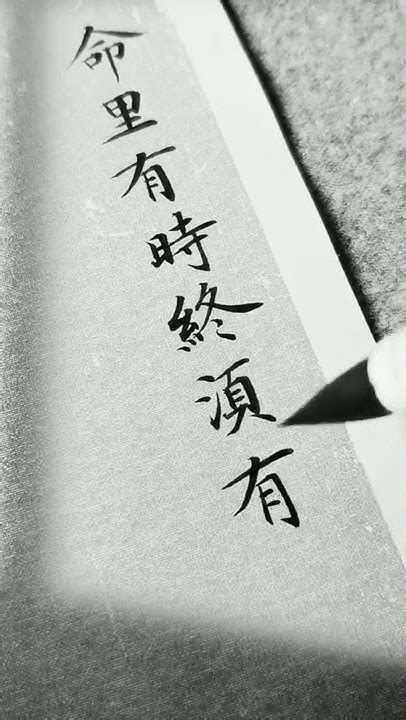 命里有時終須有